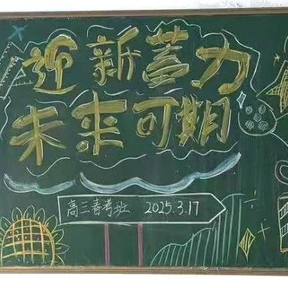 迎新蓄力
未来可期
高三春考班 2025.3.17